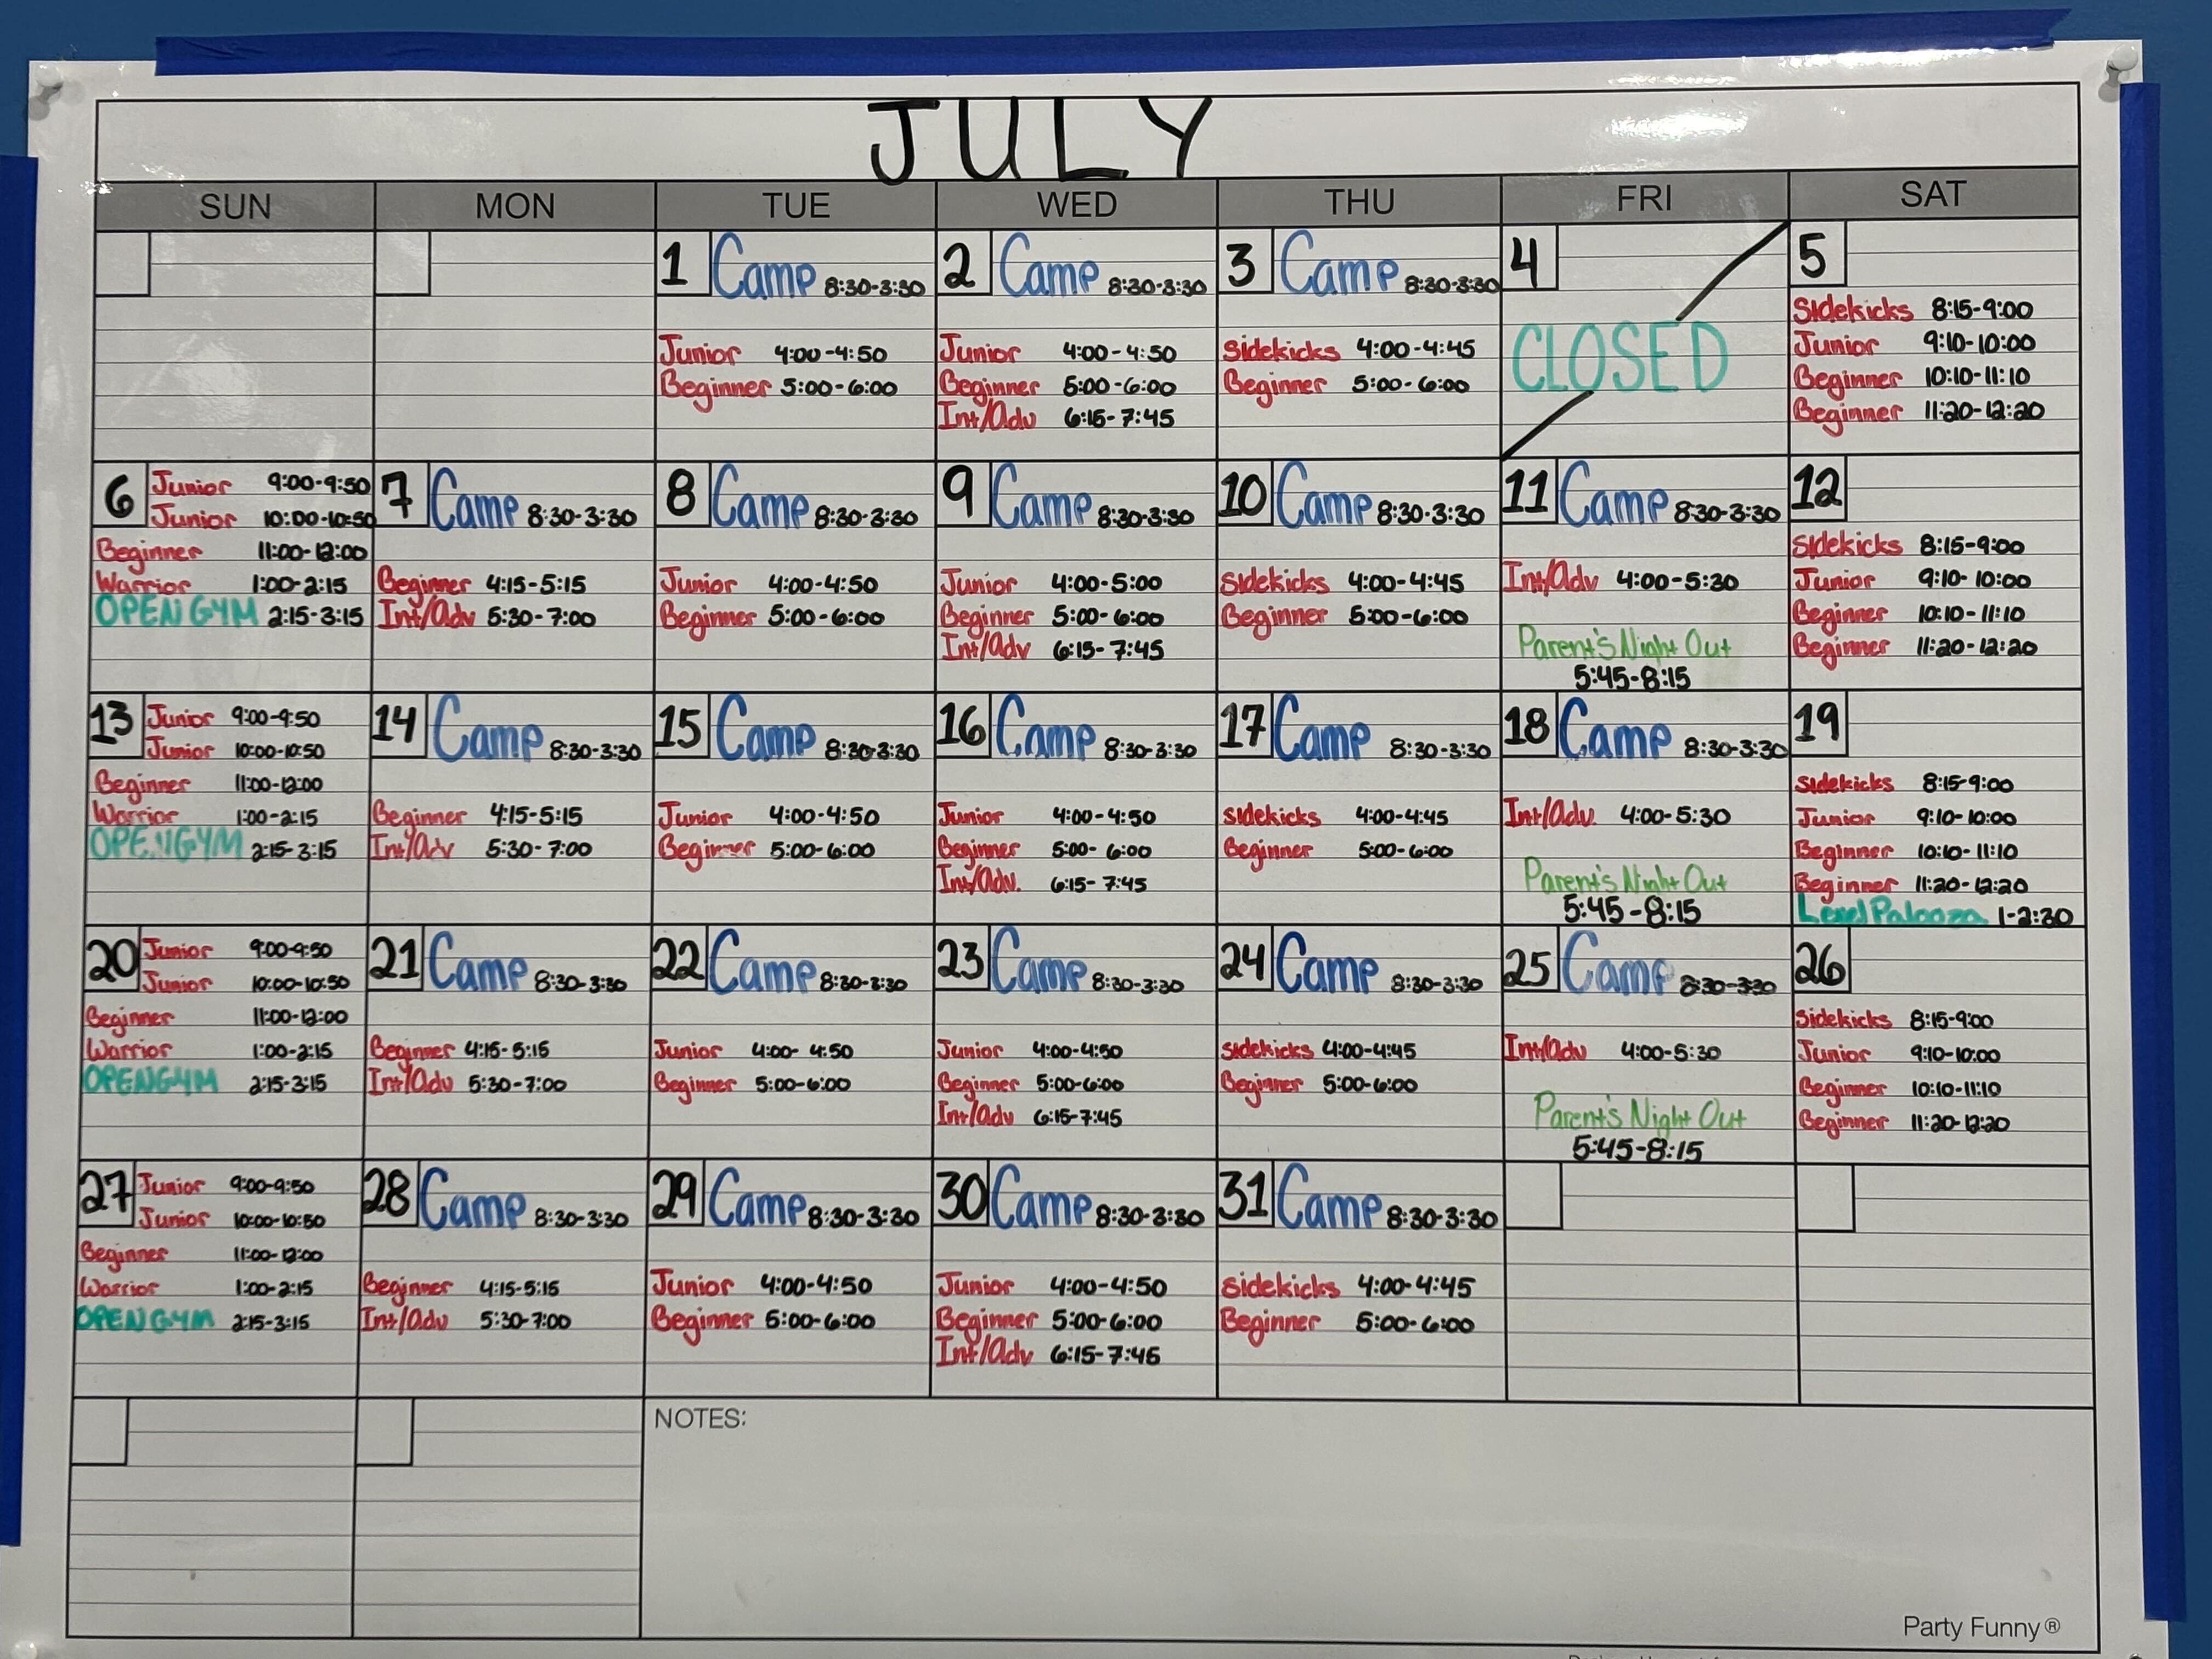 JULY
SUN MON TUE WED THU FRI SAT
1 Camp 8:30-3:30
Junior 4:00-4:50
Beginner 5:00-6:00
2 Camp 8:30-3:30
Junior 4:00-4:50
Beginner 5:00-6:00
Int/Adv 6:15-7:45
3 Camp 8:30-3:30
Sidekicks 4:00-4:45
Beginner 5:00-6:00
4
CLOSED
5
Sidekicks 8:15-9:00
Junior 9:10-10:00
Beginner 10:10-11:10
Beginner 11:20-12:20
6 Junior 9:00-9:50
Junior 10:00-10:50
Beginner 11:00-12:00
Warrior 1:00-2:15
OPEN GYM 2:15-3:15
7 Camp 8:30-3:30
Beginner 4:15-5:15
Int/Adv 5:30-7:00
8 Camp 8:30-3:30
Junior 4:00-4:50
Beginner 5:00-6:00
9 Camp 8:30-3:30
Junior 4:00-5:00
Beginner 5:00-6:00
Int/Adv 6:15-7:45
10 Camp 8:30-3:30
Sidekicks 4:00-4:45
Beginner 5:00-6:00
11 Camp 8:30-3:30
Int/Adv 4:00-5:30
Parent's Night Out
5:45-8:15
12
Sidekicks 8:15-9:00
Junior 9:10-10:00
Beginner 10:10-11:10
Beginner 11:20-12:20
13 Junior 9:00-9:50
Junior 10:00-10:50
Beginner 11:00-12:00
Warrior 1:00-2:15
OPEN GYM 2:15-3:15
14 Camp 8:30-3:30
Beginner 4:15-5:15
Int/Adv 5:30-7:00
15 Camp 8:30-3:30
Junior 4:00-4:50
Beginner 5:00-6:00
16 Camp 8:30-3:30
Junior 4:00-4:50
Beginner 5:00-6:00
Int/Adv. 6:15-7:45
17 Camp 8:30-3:30
Sidekicks 4:00-4:45
Beginner 5:00-6:00
18 Camp 8:30-3:30
Int/Adv. 4:00-5:30
Parent's Night Out
5:45-8:15
19
Sidekicks 8:15-9:00
Junior 9:10-10:00
Beginner 10:10-11:10
Beginner 11:20-12:20
Level Palooza 1-2:30
20 Junior 9:00-9:50
Junior 10:00-10:50
Beginner 11:00-12:00
Warrior 1:00-2:15
OPEN GYM 2:15-3:15
21 Camp 8:30-3:30
Beginner 4:15-5:15
Int/Adv 5:30-7:00
22 Camp 8:30-3:30
Junior 4:00-4:50
Beginner 5:00-6:00
23 Camp 8:30-3:30
Junior 4:00-4:50
Beginner 5:00-6:00
Int/Adv 6:15-7:45
24 Camp 8:30-3:30
Sidekicks 4:00-4:45
Beginner 5:00-6:00
25 Camp 8:30-3:30
Int/Adv 4:00-5:30
Parent's Night Out
5:45-8:15
26
Sidekicks 8:15-9:00
Junior 9:10-10:00
Beginner 10:10-11:10
Beginner 11:20-12:20
27 Junior 9:00-9:50
Junior 10:00-10:50
Beginner 11:00-12:00
Warrior 1:00-2:15
OPEN GYM 2:15-3:15
28 Camp 8:30-3:30
Beginner 4:15-5:15
Int/Adv 5:30-7:00
29 Camp 8:30-3:30
Junior 4:00-4:50
Beginner 5:00-6:00
30 Camp 8:30-3:30
Junior 4:00-4:50
Beginner 5:00-6:00
Int/Adv 6:15-7:45
31 Camp 8:30-3:30
Sidekicks 4:00-4:45
Beginner 5:00-6:00
NOTES:
Party Funny®